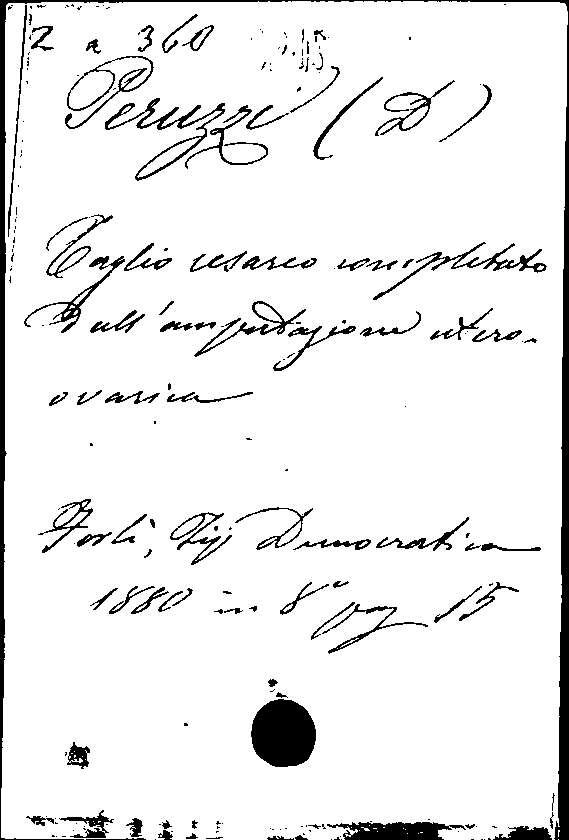 2 a 360
Peruzzi (D)
Taglio cesareo completato
dall'amputazione utero-
ovarica
Forlì, Tip Democratica
1880 in 8° pag 15